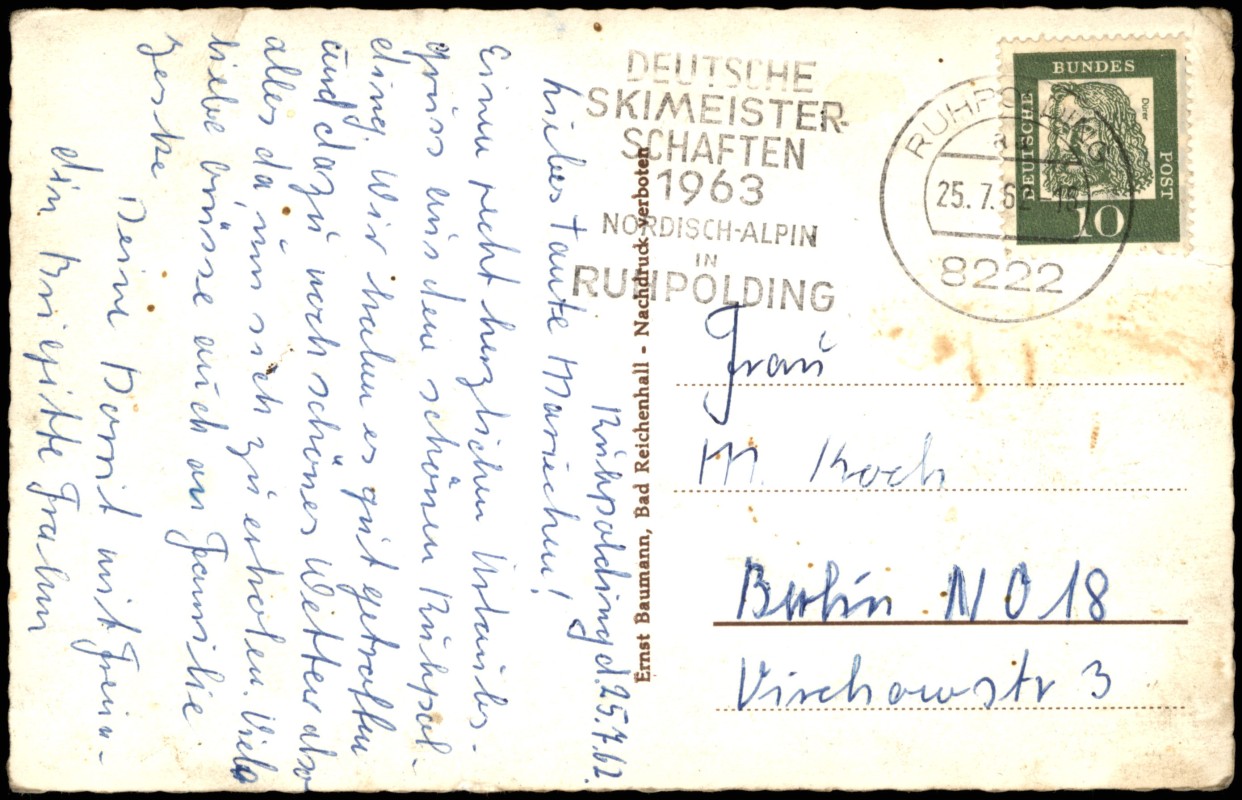 Ruhpolding d. 25.7.62.
Liebes Tante Mariechen!
Einen recht herzlichen Urlaubs-
gruss aus dem schönen Ruhpol-
ding. Wir haben es gut getroffen
und dazu noch schönes Wetter also
alles da, um sich zu erholen. Viele
liebe Grüsse auch an Familie
Deine Dorrit mit Freun-
din Brigitte Frahm
Ernst Baumann, Bad Reichenhall - Nachdruck verboten
DEUTSCHE
SKIMEISTER-
SCHAFTEN
1963
NORDISCH-ALPIN
IN
RUHPOLDING
RUHPOLDING
25.7.62-18
8222
DEUTSCHE
BUNDES
POST
Dürer
10
Frau
M. Koch
Berlin NO 18
Virchowstr 3